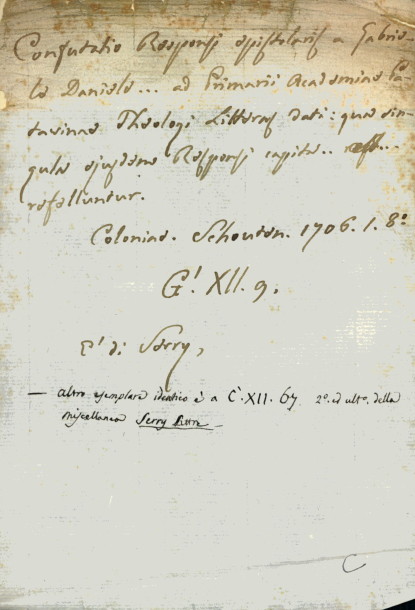 Confutatio Responsi epistolaris a Gabrie-
le Daniele... ad Primarii Academiae Pa-
tavinae Theologi Litteras dati: qua sin-
gula ejusdem Responsi capita..
refelluntur.
Coloniae. Schouten. 1706. 1. 8º
G! XII. 9.
E' di Serry,
— altro esemplare identico è a C. XII. 67 2º. ed ultº. della
miscellanea Serry
C